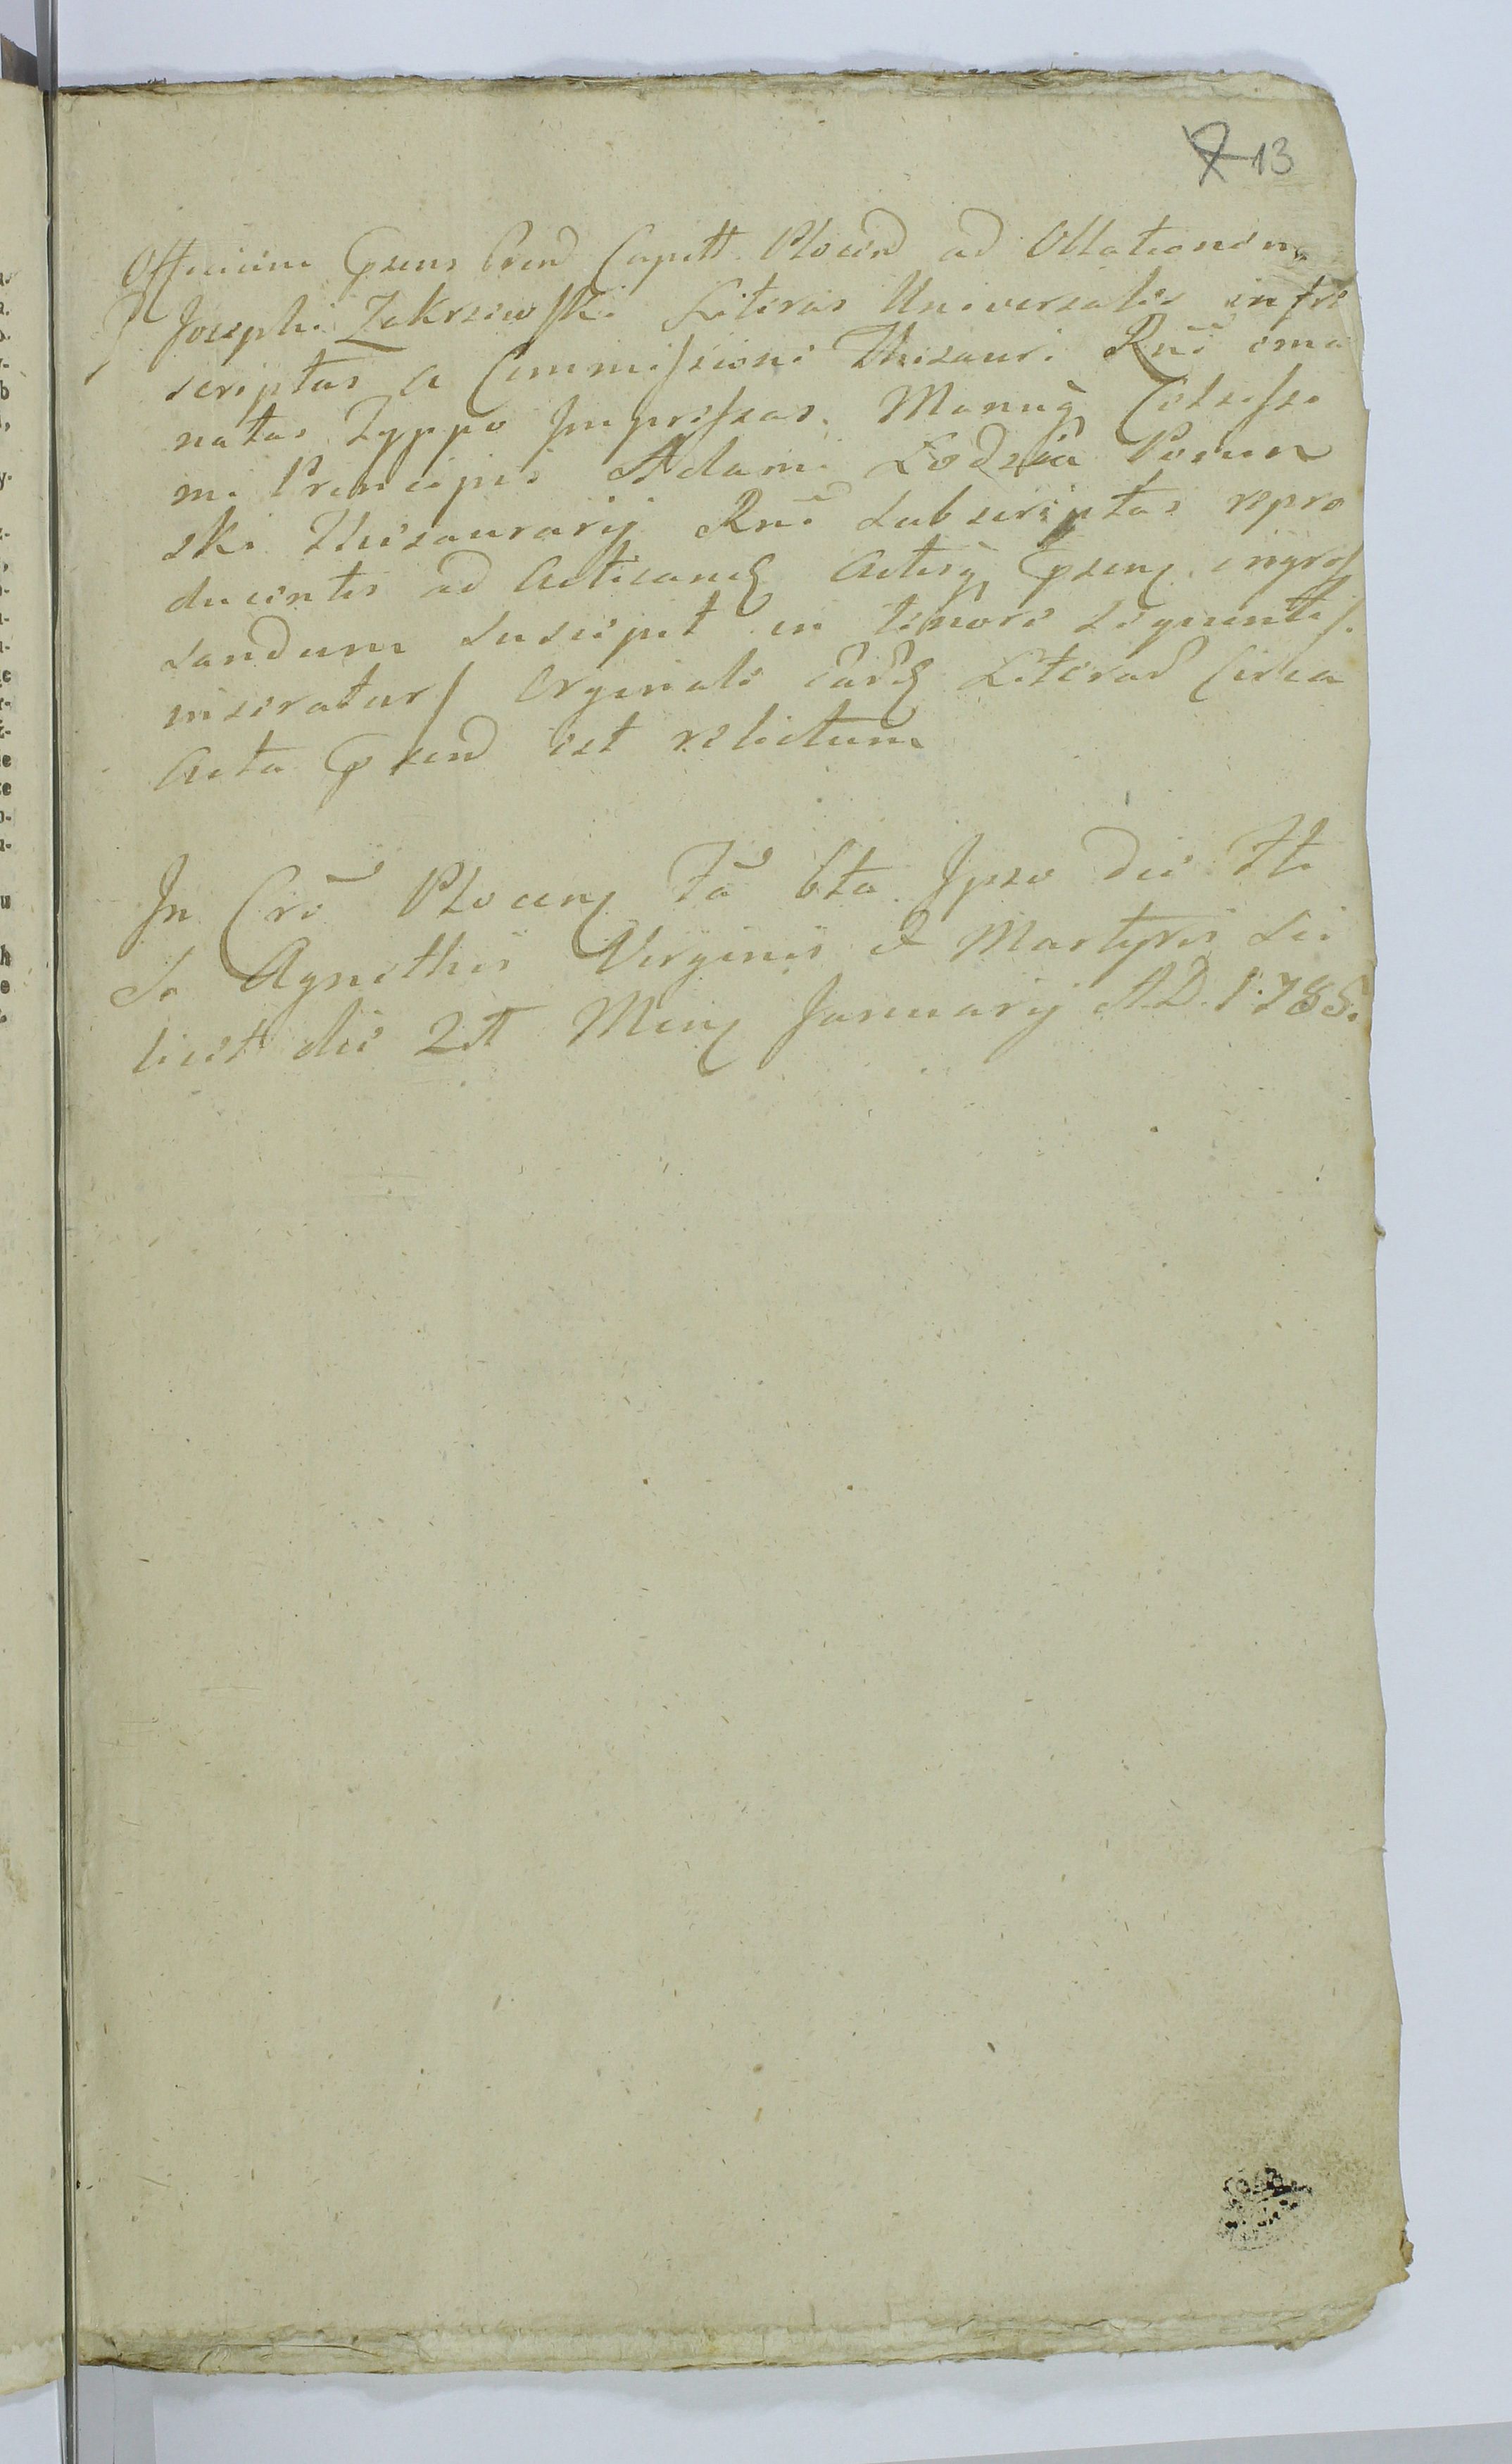 13
Officium Gsens Cren Capitt Plocen ad Oblationem
G Josephi Zakrzewski Literas Universales infra
scriptas a Commissione Thesauri Rñi ema
natas Typpo Impressas, Manuq Celsissi
mi Principis Adami Łodzia Ponin
ski Thesaurarij Rñi subscriptas repro
ducentis ad acticand Actisq Gsen ingros
sandum suscepit in tenore sequenti/
inseratur/ Orginale eard Literar Circa
Acta Gsen est relictum
In Crõ Plocen Fã 6ta Ipso die Fe
sto Agnethis Virginis & Martyris sci
licet die 21 Men Januarij A.D. 1785.